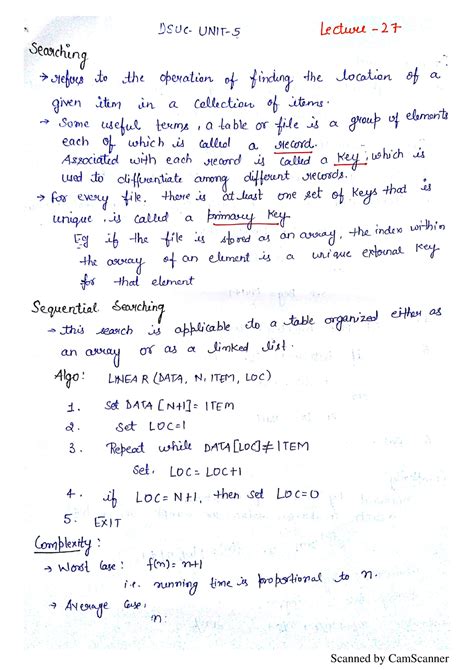 DSUC- UNIT-5
Lecture -27
Searching
→ refers to the operation of finding the location of a
given item in a collection of items.
→ Some useful terms, a table or file is a group of elements
each of which is called a record.
Associated with each record is called a key, which is
used to differentiate among different records.
→ for every file, there is at least one set of keys that is
unique, is called a primary key
Eg if the file is stored as an array, the index within
the array of an element is a unique external key
for that element
Sequential Searching
→ this search is applicable to a table organized either as
an array or as a linked list.
Algo: LINEAR (DATA, N, ITEM, LOC)
1. Set DATA [N+1] = ITEM
2. Set LOC=1
3. Repeat while DATA[LOC] ≠ ITEM
Set, LOC = LOC+1
4. if LOC = N+1, then set LOC=0
5. EXIT
Complexity :
→ Worst Case: f(n) = n+1
i.e. running time is proportional to n.
→ Average Case:
n:
Scanned by CamScanner